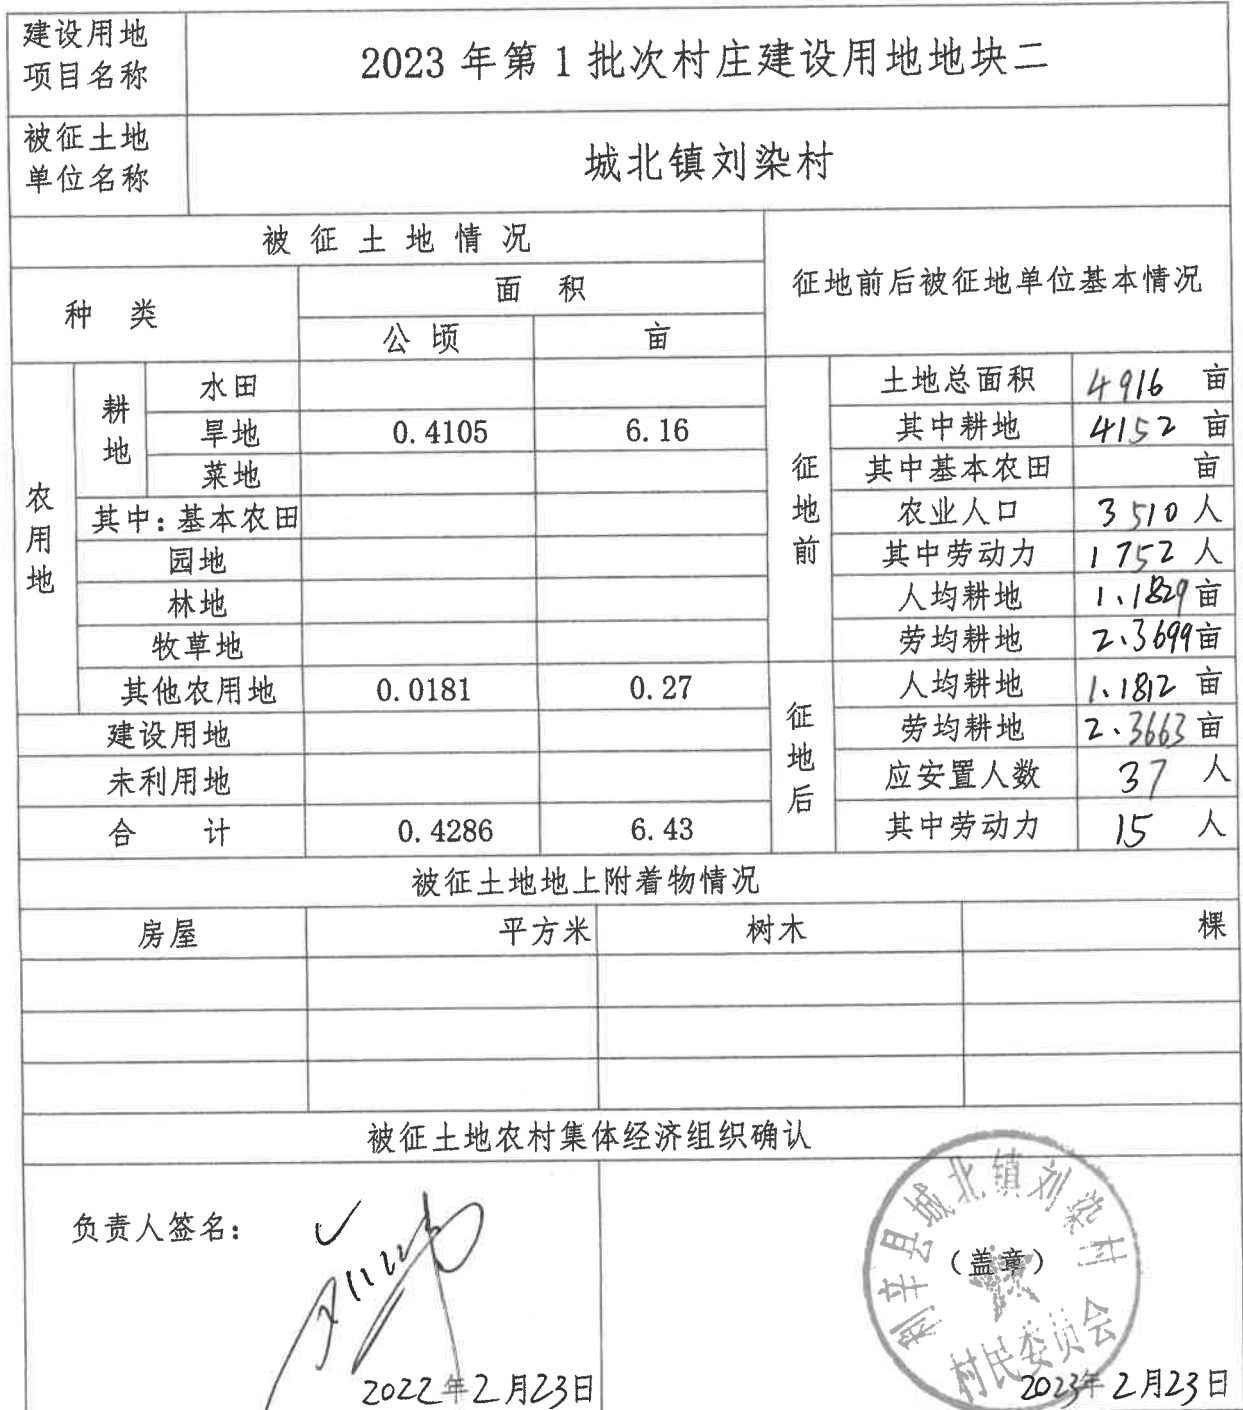 建设用地
项目名称
2023年第1批次村庄建设用地地块二
被征土地
单位名称
城北镇刘染村
被征土地情况
征地前后被征地单位基本情况
种 类
面 积
公 顷 亩
农用地
耕地
水田
旱地 0.4105 6.16
菜地
其中:基本农田
园地
林地
牧草地
其他农用地 0.0181 0.27
建设用地
未利用地
合 计 0.4286 6.43
征地前
土地总面积 4916 亩
其中耕地 4152 亩
其中基本农田 亩
农业人口 3510 人
其中劳动力 1752 人
人均耕地 1.1829 亩
劳均耕地 2.3699 亩
征地后
人均耕地 1.1812 亩
劳均耕地 2.3663 亩
应安置人数 37 人
其中劳动力 15 人
被征土地地上附着物情况
房屋 平方米 树木 棵
被征土地农村集体经济组织确认
负责人签名:
2022年2月23日
利辛县城北镇刘染村
(盖章)
村民委员会
2023年2月23日